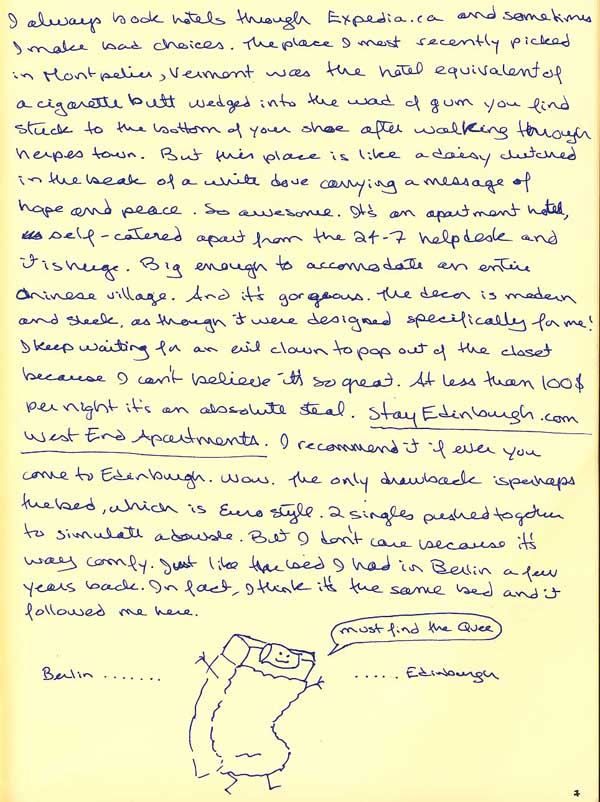 I always book hotels through Expedia.ca and sometimes
I make bad choices. The place I most recently picked
in Montpelier, Vermont was the hotel equivalent of
a cigarette butt wedged into the wad of gum you find
stuck to the bottom of your shoe after walking through
herpes town. But this place is like a daisy clutched
in the beak of a white dove carrying a message of
hope and peace. So awesome. It's an apartment hotel,
self-catered apart from the 24-7 helpdesk and
it is huge. Big enough to accomodate an entire
Chinese village. And it's gorgeous. The decor is modern
and sleek, as though it were designed specifically for me!
I keep waiting for an evil clown to pop out of the closet
because I can't believe it's so great. At less than 100$
per night it's an absolute steal. StayEdinburgh.com
West End Apartments. I recommend it if ever you
come to Edinburgh. Wow. The only drawback is perhaps
the bed, which is Euro style. 2 singles pushed together
to simulate a double. But I don't care because it's
way comfy. Just like the bed I had in Berlin a few
years back. In fact, I think it's the same bed and it
followed me here.
must find the Quee
Berlin ....... ..... Edinburgh